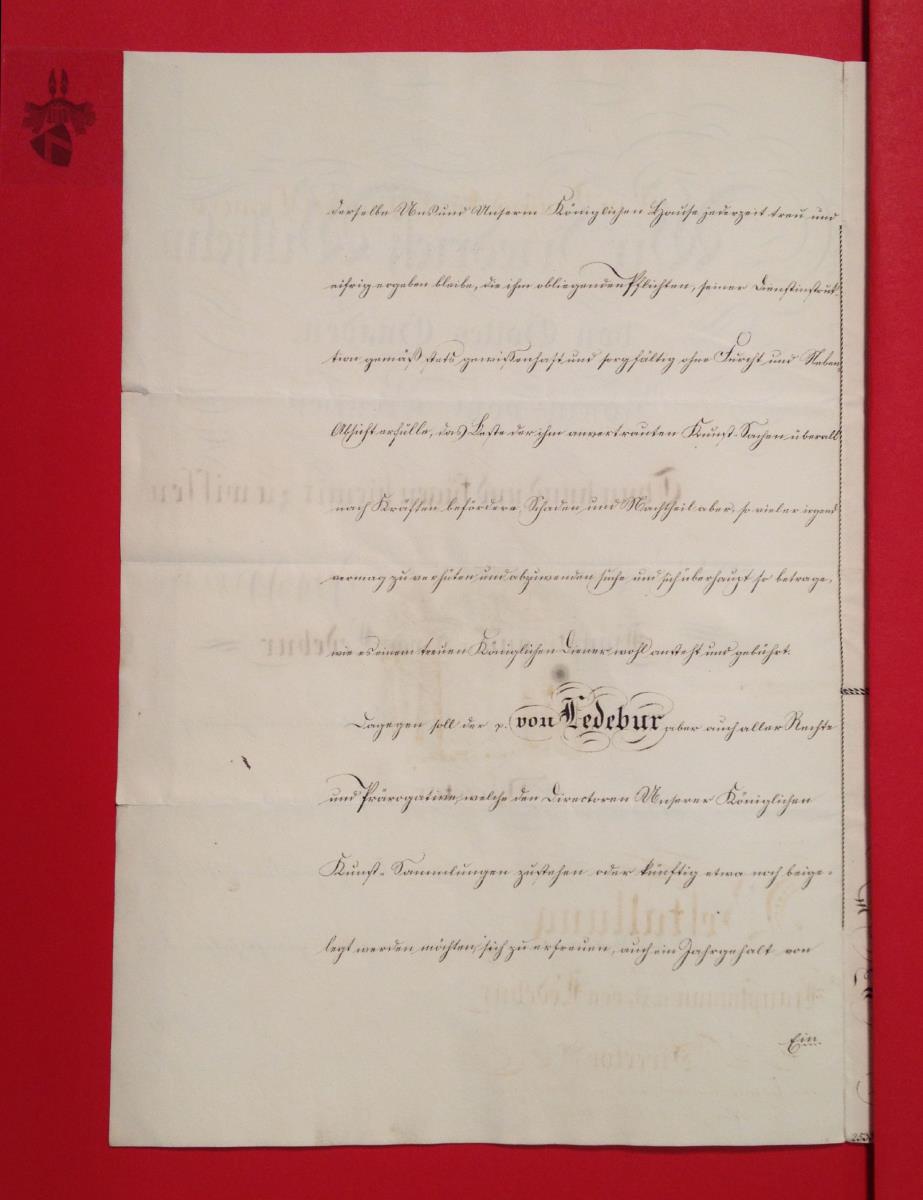 derselbe Uns und Unserm Königlichen Hause jederzeit treu und
eifrig ergeben bleibe, die ihm obliegenden Pflichten, seiner Dienstinstruk-
tion gemäß stets gewissenhaft und sorgfältig ohne Furcht und Neben
Absicht erfülle, das Beste der ihm anvertrauten Kunst-Sachen überall
nach Kräften befördere, Schaden und Nachtheil aber, so viel er irgend
vermag zu verhüten und abzuwenden suche und sich überhaupt so betrage,
wie es einem treuen Königlichen Diener wohl ansteht und gebührt.
Dagegen soll der p. von Ledebur aber auch aller Rechte
und Prärogative, welche den Directoren Unserer Königlichen
Kunst-Sammlungen zustehen oder künftig etwa noch beige-
legt werden möchten, sich zu erfreuen, auch ein Jahrgehalt von
Ein